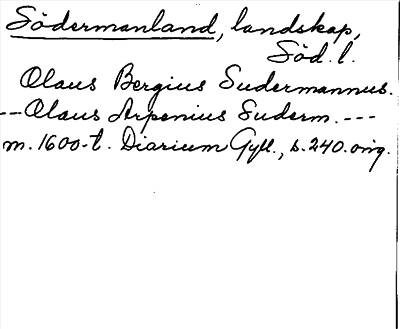 Södermanland, landskap,
Söd. l.
Olaus Bergius Sudermannus.
--Olaus Arpenius Suderm. ---
m. 1600-t. Diarium Gyll., s. 240. orig.